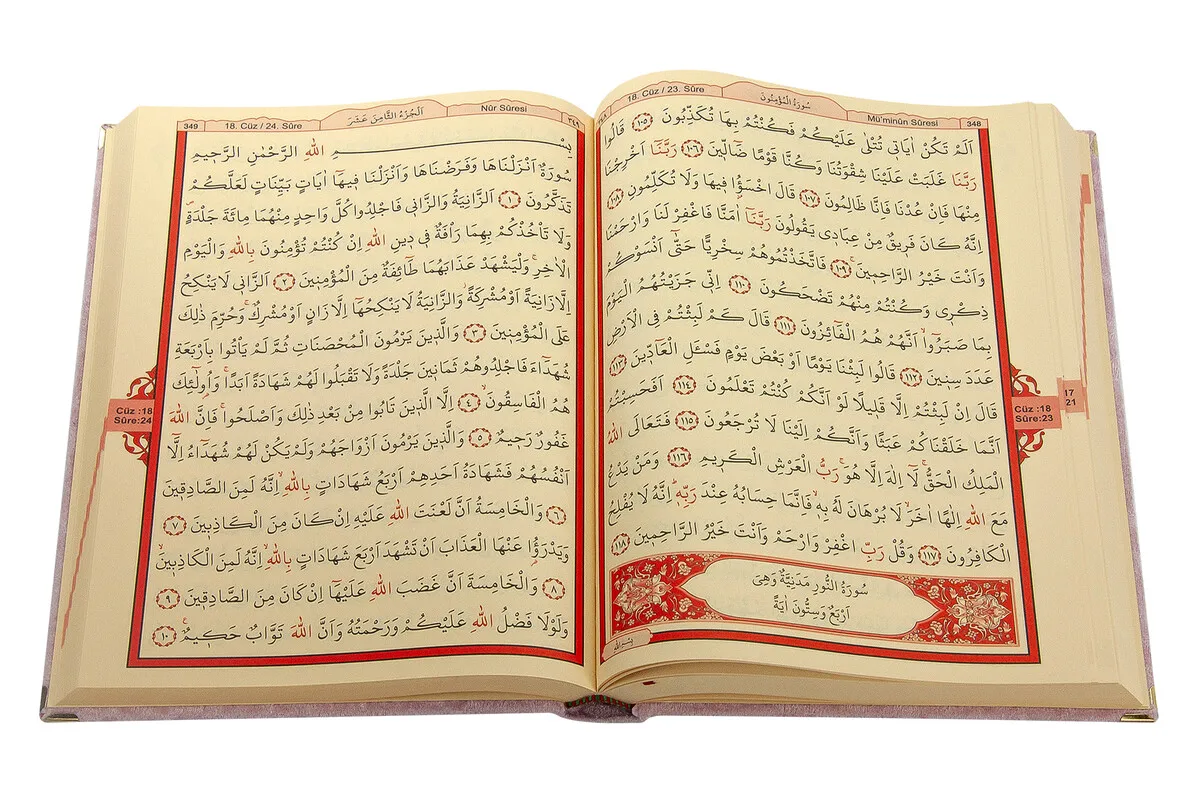 348 Mü'minûn Sûresi سُورَةُ الْمُؤْمِنُونَ 18. Cüz / 23. Sûre
اَلَمْ تَكُنْ اٰيَاتٖي تُتْلٰى عَلَيْكُمْ فَكُنْتُمْ بِهَا تُكَذِّبُونَ ١٠٥ قَالُوا
رَبَّنَا غَلَبَتْ عَلَيْنَا شِقْوَتُنَا وَكُنَّا قَوْمًا ضَٓالّٖينَ ١٠٦ رَبَّنَٓا اَخْرِجْنَا
مِنْهَا فَاِنْ عُدْنَا فَاِنَّا ظَالِمُونَ ١٠٧ قَالَ اخْسَؤُ۫ا فٖيهَا وَلَا تُكَلِّمُونِ ١٠٨
اِنَّهُ كَانَ فَرٖيقٌ مِنْ عِبَادٖي يَقُولُونَ رَبَّنَٓا اٰمَنَّا فَاغْفِرْ لَنَا وَارْحَمْنَا
وَاَنْتَ خَيْرُ الرَّاحِمٖينَ ١٠٩ فَاتَّخَذْتُمُوهُمْ سِخْرِيًّا حَتّٰٓى اَنْسَوْكُمْ
ذِكْرٖي وَكُنْتُمْ مِنْهُمْ تَضْحَكُونَ ١١٠ اِنّٖي جَزَيْتُهُمُ الْيَوْمَ
بِمَا صَبَرُٓوا اَنَّهُمْ هُمُ الْفَٓائِزُونَ ١١١ قَالَ كَمْ لَبِثْتُمْ فِي الْاَرْضِ
عَدَدَ سِنٖينَ ١١٢ قَالُوا لَبِثْنَا يَوْمًا اَوْ بَعْضَ يَوْمٍ فَسْـَٔلِ الْعَٓادّٖينَ ١١٣
قَالَ اِنْ لَبِثْتُمْ اِلَّا قَلٖيلًا لَوْ اَنَّكُمْ كُنْتُمْ تَعْلَمُونَ ١١٤ اَفَحَسِبْتُمْ
اَنَّمَا خَلَقْنَاكُمْ عَبَثًا وَاَنَّكُمْ اِلَيْنَا لَا تُرْجَعُونَ ١١٥ فَتَعَالَى اللّٰهُ
الْمَلِكُ الْحَقُّۚ لَٓا اِلٰهَ اِلَّا هُوَۚ رَبُّ الْعَرْشِ الْكَرٖيمِ ١١٦ وَمَنْ يَدْعُ
مَعَ اللّٰهِ اِلٰهًا اٰخَرَۙ لَا بُرْهَانَ لَهُ بِهٖۙ فَاِنَّمَا حِسَابُهُ عِنْدَ رَبِّهٖؕ اِنَّهُ لَا يُفْلِحُ
الْكَافِرُونَ ١١٧ وَقُلْ رَبِّ اغْفِرْ وَارْحَمْ وَاَنْتَ خَيْرُ الرَّاحِمٖينَ ١١٨
سُورَةُ النُّورِ مَدَنِيَّةٌ وَهِيَ
اَرْبَعٌ وَسِتُّونَ اٰيَةً
Cüz :18
Sûre:23
17
21
٣٤٩ Nûr Sûresi اَلْجُزْءُ الثَّامِنَ عَشَرَ 18. Cüz / 24. Sûre 349
بِسْمِ اللّٰهِ الرَّحْمٰنِ الرَّحٖيمِ
سُورَةٌ اَنْزَلْنَاهَا وَفَرَضْنَاهَا وَاَنْزَلْنَا فٖيهَٓا اٰيَاتٍ بَيِّنَاتٍ لَعَلَّكُمْ
تَذَكَّرُونَ ١ اَلزَّانِيَةُ وَالزَّانٖي فَاجْلِدُوا كُلَّ وَاحِدٍ مِنْهُمَا مِائَةَ جَلْدَةٍ
وَلَا تَأْخُذْكُمْ بِهِمَا رَأْفَةٌ فٖي دٖينِ اللّٰهِ اِنْ كُنْتُمْ تُؤْمِنُونَ بِاللّٰهِ وَالْيَوْمِ
الْاٰخِرِۚ وَلْيَشْهَدْ عَذَابَهُمَا طَٓائِفَةٌ مِنَ الْمُؤْمِنٖينَ ٢ اَلزَّانٖي لَا يَنْكِحُ
اِلَّا زَانِيَةً اَوْ مُشْرِكَةًؗ وَالزَّانِيَةُ لَا يَنْكِحُهَٓا اِلَّا زَانٍ اَوْ مُشْرِكٌۚ وَحُرِّمَ ذٰلِكَ
عَلَى الْمُؤْمِنٖينَ ٣ وَالَّذٖينَ يَرْمُونَ الْمُحْصَنَاتِ ثُمَّ لَمْ يَأْتُوا بِاَرْبَعَةِ
شُهَدَٓاءَ فَاجْلِدُوهُمْ ثَمَانٖينَ جَلْدَةً وَلَا تَقْبَلُوا لَهُمْ شَهَادَةً اَبَدًاۚ وَاُو۬لٰٓئِكَ
هُمُ الْفَاسِقُونَۙ ٤ اِلَّا الَّذٖينَ تَابُوا مِنْ بَعْدِ ذٰلِكَ وَاَصْلَحُواۚ فَاِنَّ اللّٰهَ
غَفُورٌ رَحٖيمٌ ٥ وَالَّذٖينَ يَرْمُونَ اَزْوَاجَهُمْ وَلَمْ يَكُنْ لَهُمْ شُهَدَٓاءُ اِلَّٓا
اَنْفُسُهُمْ فَشَهَادَةُ اَحَدِهِمْ اَرْبَعُ شَهَادَاتٍ بِاللّٰهِۙ اِنَّهُ لَمِنَ الصَّادِقٖينَ
٦ وَالْخَامِسَةُ اَنَّ لَعْنَتَ اللّٰهِ عَلَيْهِ اِنْ كَانَ مِنَ الْكَاذِبٖينَ ٧
وَيَدْرَؤُ۬ا عَنْهَا الْعَذَابَ اَنْ تَشْهَدَ اَرْبَعَ شَهَادَاتٍ بِاللّٰهِۙ اِنَّهُ لَمِنَ الْكَاذِبٖينَۙ
٨ وَالْخَامِسَةَ اَنَّ غَضَبَ اللّٰهِ عَلَيْهَٓا اِنْ كَانَ مِنَ الصَّادِقٖينَ ٩
وَلَوْلَا فَضْلُ اللّٰهِ عَلَيْكُمْ وَرَحْمَتُهُ وَاَنَّ اللّٰهَ تَوَّابٌ حَكٖيمٌ۟ ١٠
Cüz :18
Sûre:24